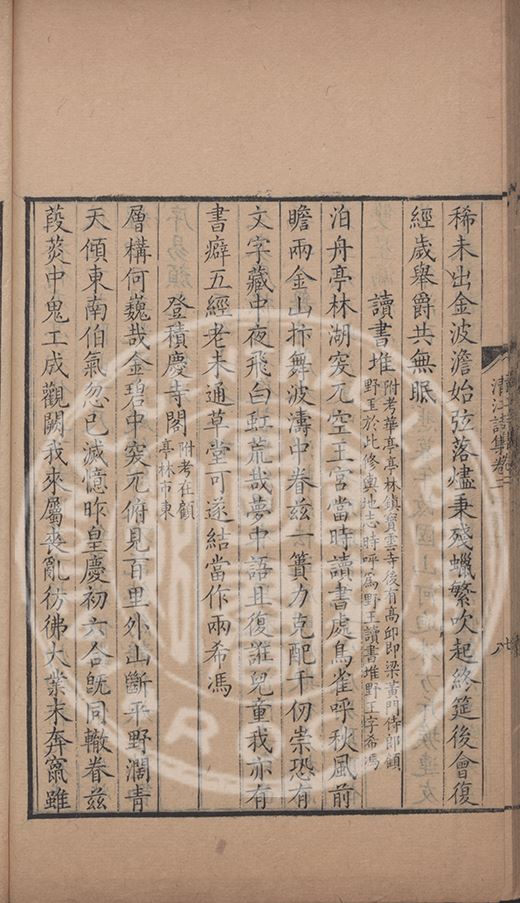 稀未出金波澹始弦落燼秉殘蠟繁吹起終筵後會復
經歲舉爵共無眠
讀書堆附考華亭亭林鎮寶雲寺後有高邱即梁黃門侍郎顧
野王於此修輿地志時呼爲野王讀書堆野王字希馮
泊舟亭林湖突兀空王宮當時讀書處鳥雀呼秋風前
瞻兩金山抃舞波濤中眷兹一簣力克配千仞崇恐有
文字藏中夜飛白虹荒哉夢中語且復誑兒童我亦有
書癖五經老未通草堂可遂結當作兩希馮
登積慶寺閣附考在顧
亭林市東
層構何巍哉金碧中突兀俯見百里外山斷平野濶青
天傾東南伯氣忽已滅憶昨皇慶初六合旣同轍眷兹
葭菼中鬼工成觀闕我來屬喪亂彷彿大業末奔竄雖
清江詩集卷二